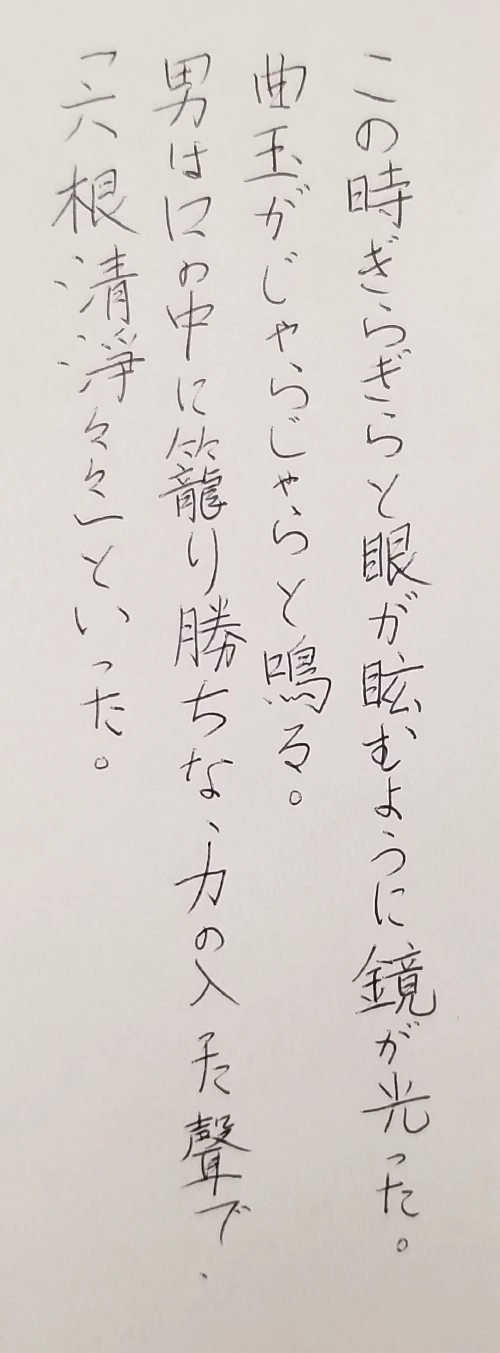 この時ぎらぎらと眼が眩むように鏡が光った。
曲玉がじゃらじゃらと鳴る。
男は口の中に籠り勝ちな、力の入た聲で、
「六根清淨々々」といった。